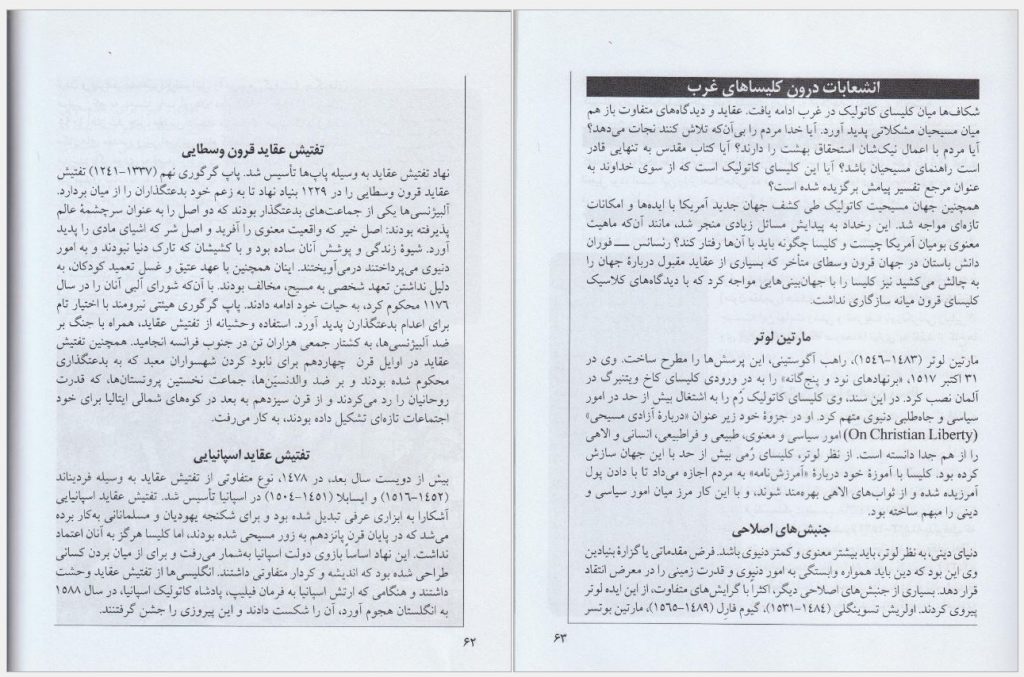 تفتیش عقاید قرون وسطایی
نهاد تفتیش عقاید به وسیله پاپ‌ها تأسیس شد. پاپ گرگوری نهم (۱۳۳۷–۱۲۴۱) تفتیش
عقاید قرون وسطایی را در ۱۲۲۹ بنیاد نهاد تا به زعم خود بدعتگذاران را از میان بردارد.
آلبیژنسی‌ها یکی از جماعت‌های بدعتگذار بودند که دو اصل را به عنوان سرچشمهٔ عالم
پذیرفته بودند: اصل خیر که واقعیت معنوی را آفرید و اصل شر که اشیای مادی را پدید
آورد. شیوهٔ زندگی و پوشش آنان ساده بود و با کشیشان که تارک دنیا نبودند و به امور
دنیوی می‌پرداختند درمی‌آویختند. اینان همچنین با عهد عتیق و غسل تعمید کودکان، به
دلیل نداشتن تعهد شخصی به مسیح، مخالف بودند. با آن‌که شورای آلبی آنان را در سال
۱۱۷۶ محکوم کرد، به حیات خود ادامه دادند. پاپ گرگوری هیئتی نیرومند با اختیار تام
برای اعدام بدعتگذاران پدید آورد. استفاده وحشیانه از تفتیش عقاید، همراه با جنگ بر
ضد آلبیژنسی‌ها، به کشتار جمعی هزاران تن در جنوب فرانسه انجامید. همچنین تفتیش
عقاید در اوایل قرن چهاردهم برای نابود کردن شهسواران معبد که به بدعتگذاری
محکوم شده بودند و بر ضد والدنسیّن‌ها، جماعت نخستین پروتستان‌ها، که قدرت
روحانیان را رد می‌کردند و از قرن سیزدهم به بعد در کوه‌های شمالی ایتالیا برای خود
اجتماعات تازه‌ای تشکیل داده بودند، به کار می‌رفت.
تفتیش عقاید اسپانیایی
بیش از دویست سال بعد، در ۱۴۷۸، نوع متفاوتی از تفتیش عقاید به وسیله فردیناند
(۱۴۵۲–۱۵۱۶) و ایسابلا (۱۴۵۱–۱۵۰۴) در اسپانیا تأسیس شد. تفتیش عقاید اسپانیایی
آشکارا به ابزاری عرفی تبدیل شده بود و برای شکنجه یهودیان و مسلمانانی به‌کار برده
می‌شد که در پایان قرن پانزدهم به زور مسیحی شده بودند، اما کلیسا هرگز به آنان اعتماد
نداشت. این نهاد اساساً بازوی دولت اسپانیا به‌شمار می‌رفت و برای از میان بردن کسانی
طراحی شده بود که اندیشه و کردار متفاوتی داشتند. انگلیسی‌ها از تفتیش عقاید وحشت
داشتند و هنگامی که ارتش اسپانیا به فرمان فیلیپ، پادشاه کاتولیک اسپانیا، در سال ۱۵۸۸
به انگلستان هجوم آورد، آن را شکست دادند و این پیروزی را جشن گرفتند.
۶۲
انشعابات درون کلیساهای غرب
شکاف‌ها میان کلیسای کاتولیک در غرب ادامه یافت. عقاید و دیدگاه‌های متفاوت باز هم
میان مسیحیان مشکلاتی پدید آورد. آیا خدا مردم را بی‌آن‌که تلاش کنند نجات می‌دهد؟
آیا مردم با اعمال نیک‌شان استحقاق بهشت را دارند؟ آیا کتاب مقدس به تنهایی قادر
است راهنمای مسیحیان باشد؟ آیا این کلیسای کاتولیک است که از سوی خداوند به
عنوان مرجع تفسیر پیامش برگزیده شده است؟
همچنین جهان مسیحیت کاتولیک طی کشف جهان جدید آمریکا با ایده‌ها و امکانات
تازه‌ای مواجه شد. این رخداد به پیدایش مسائل زیادی منجر شد، مانند آن‌که ماهیت
معنوی بومیان آمریکا چیست و کلیسا چگونه باید با آن‌ها رفتار کند؟ رنسانس — فوران
دانش باستان در جهان قرون وسطای متأخر که بسیاری از عقاید مقبول دربارهٔ جهان را
به چالش می‌کشید نیز کلیسا را با جهان‌بینی‌هایی مواجه کرد که با دیدگاه‌های کلاسیک
کلیسای قرون میانه سازگاری نداشت.
مارتین لوتر
مارتین لوتر (۱۴۸۳–۱۵۴۶)، راهب آگوستینی، این پرسش‌ها را مطرح ساخت. وی در
۳۱ اکتبر ۱۵۱۷، «برنهادهای نود و پنج‌گانه» را به در ورودی کلیسای کاخ ویتنبرگ در
آلمان نصب کرد. در این سند، وی کلیسای کاتولیک رُم را به اشتغال بیش از حد در امور
سیاسی و جاه‌طلبی دنیوی متهم کرد. او در جزوهٔ خود زیر عنوان «دربارهٔ آزادی مسیحی»
(On Christian Liberty) امور سیاسی و معنوی، طبیعی و فراطبیعی، انسانی و الاهی
را از هم جدا دانسته است. از نظر لوتر، کلیسای رُمی بیش از حد با این جهان سازش
کرده بود. کلیسا با آموزهٔ خود دربارهٔ «آمرزش‌نامه» به مردم اجازه می‌داد تا با دادن پول
آمرزیده شده و از ثواب‌های الاهی بهره‌مند شوند، و با این کار مرز میان امور سیاسی و
دینی را مبهم ساخته بود.
جنبش‌های اصلاحی
دنیای دینی، به نظر لوتر، باید بیشتر معنوی و کمتر دنیوی باشد. فرض مقدماتی یا گزارهٔ بنیادین
وی این بود که دین باید همواره وابستگی به امور دنیوی و قدرت زمینی را در معرض انتقاد
قرار دهد. بسیاری از جنبش‌های اصلاحی دیگر، اکثراً با گرایش‌های متفاوت، از این ایده لوتر
پیروی کردند. اولریش تسوینگلی (۱۴۸۴–۱۵۳۱)، گیوم فارل (۱۴۸۹–۱۵۶۵)، مارتین بوتسر
۶۳